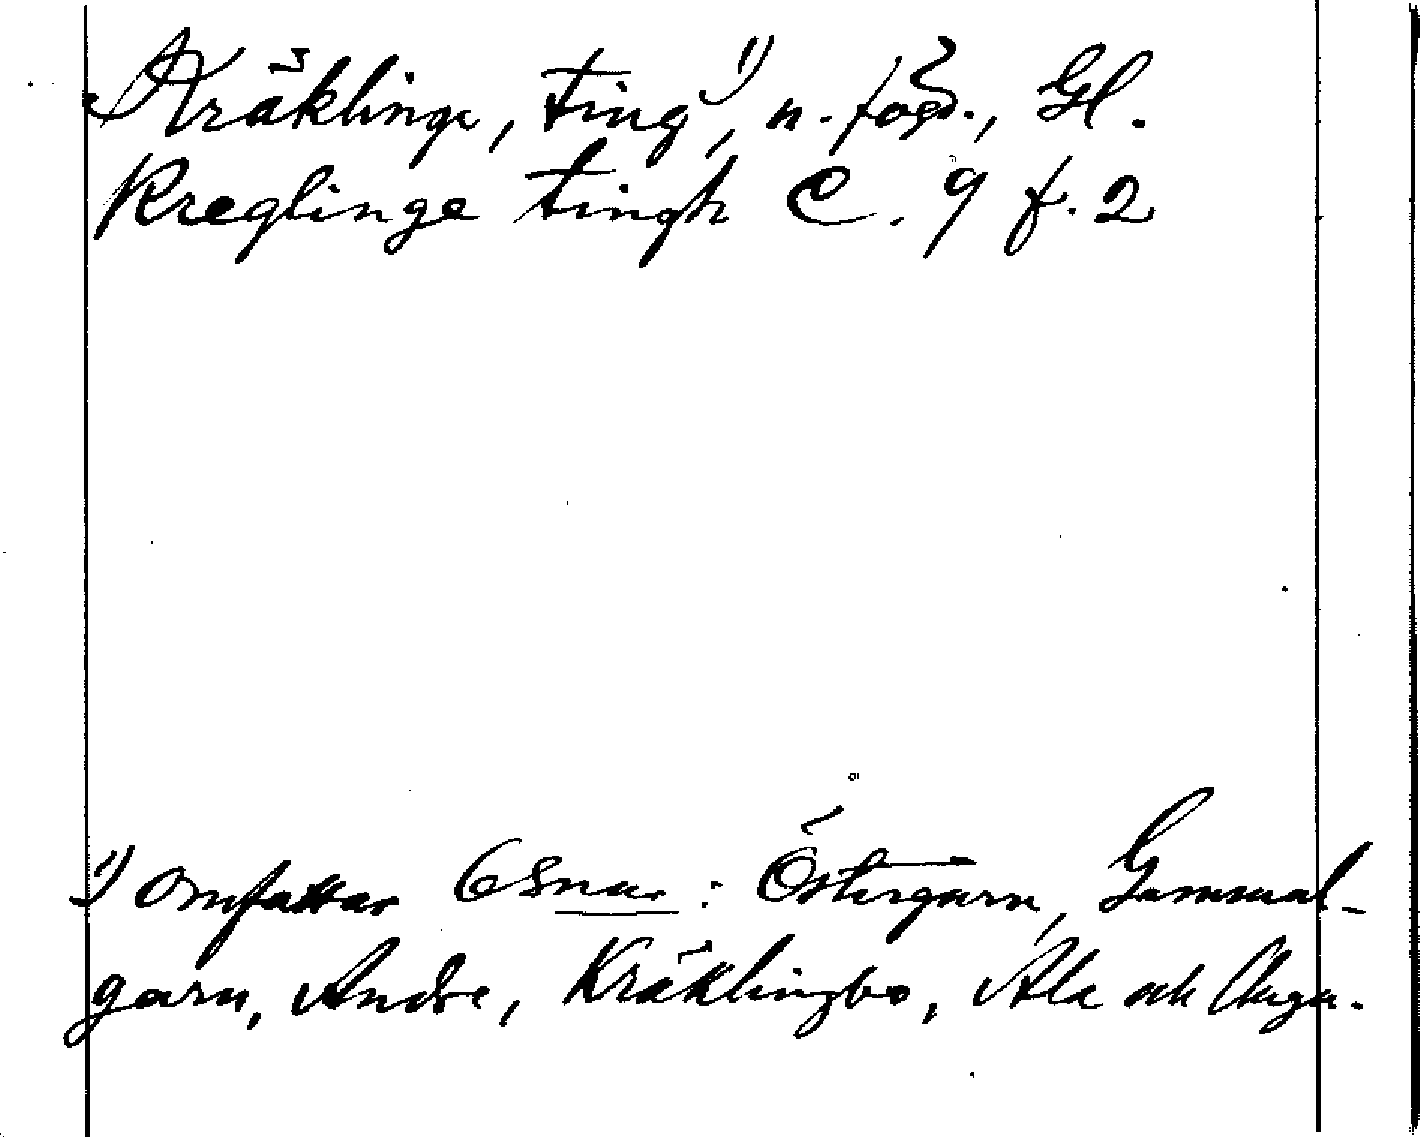 Kräklinge, ting 1), n. fögd., Gl.
Kreglinge tingh C. 9 f. 2
1) Omfattar 6 snar : Östergarn, Gammal-
garn, Andre, Kräklingbo, Ala och Anga.